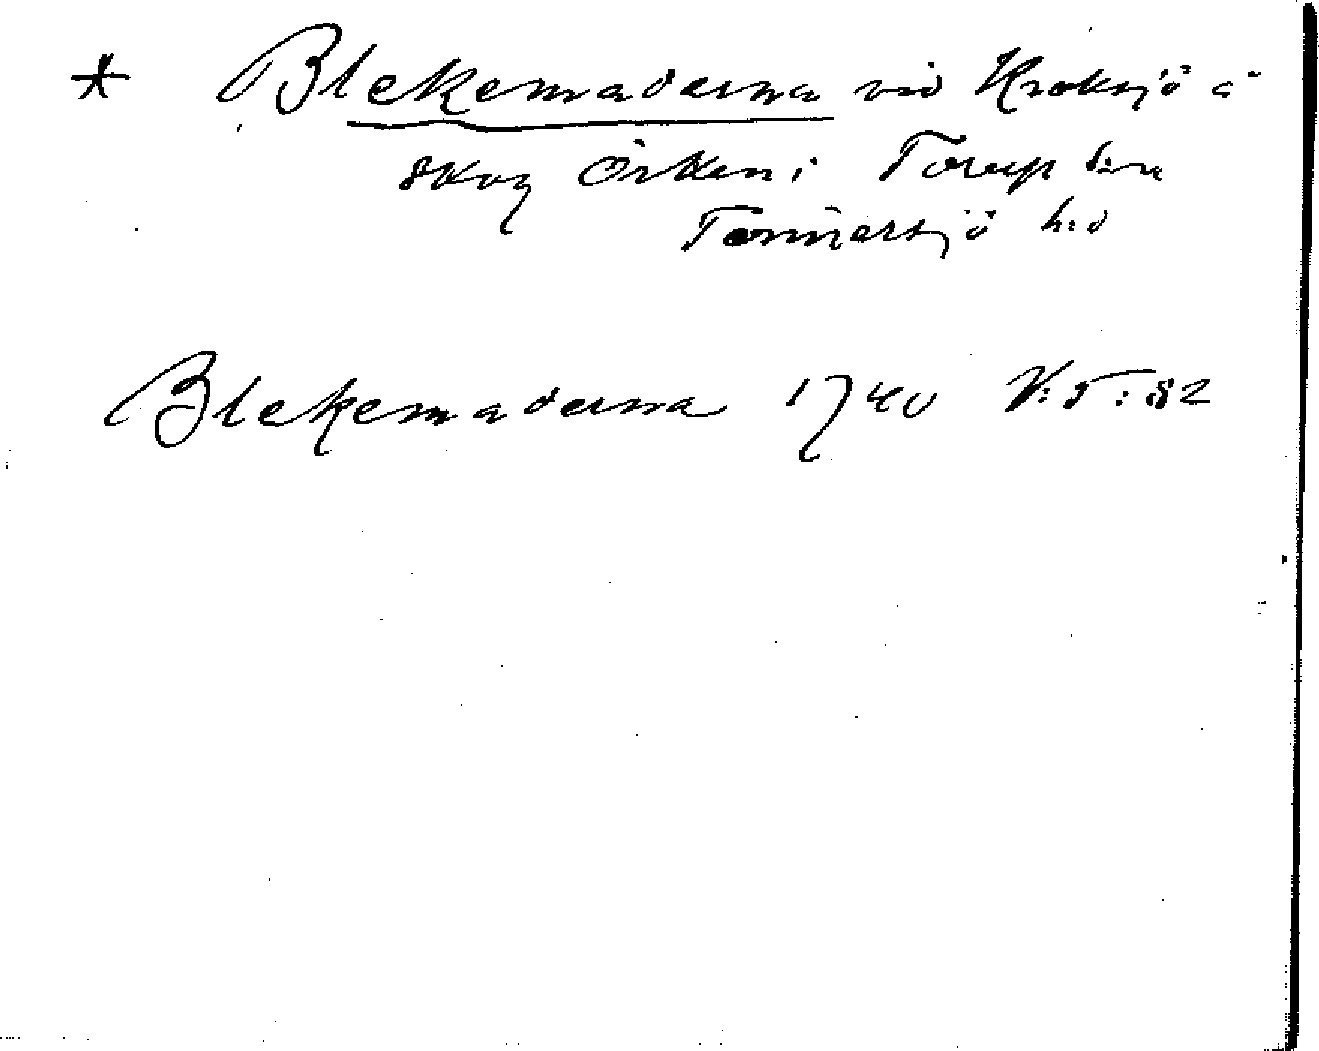 * Blekemaderna vid Kroksjö å
skog Örken i Torup sn
Tönnersjö hd
Blekemaderna 1740 V:T:82